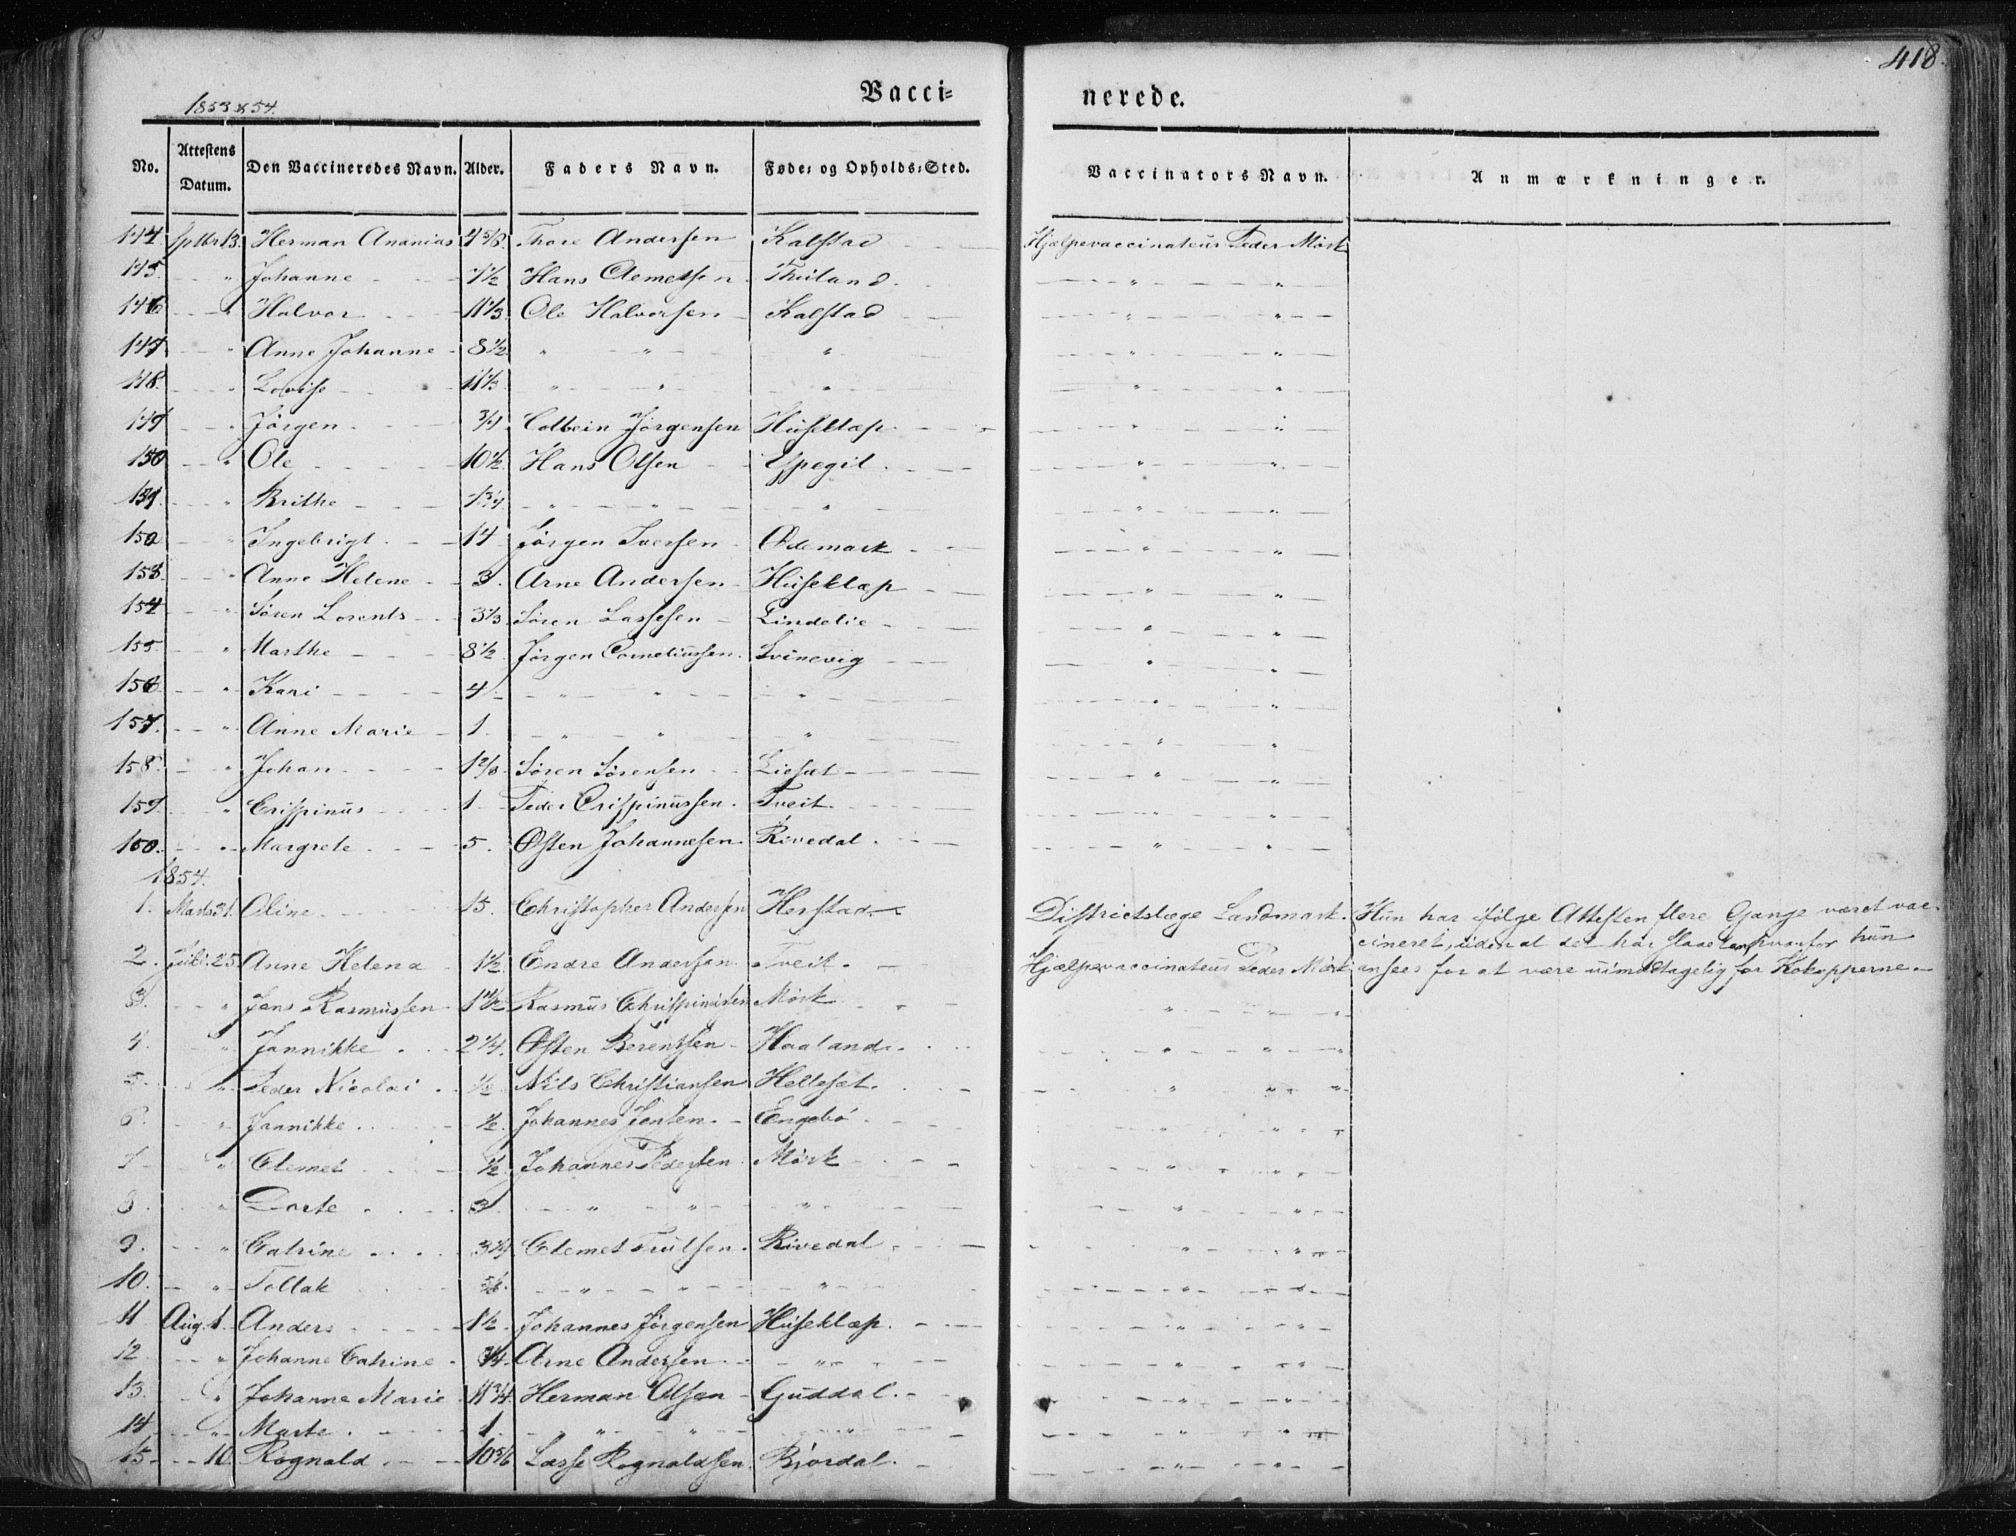 418.
1853 & 54.
Vacci=
nerede.
No. Attestens Datum. Den Vaccineredes Navn. Alder. Faders Navn. Føde= og Opholds=Sted. Vaccinators Navn. Anmærkninger.
144 Sptbr 13. Herman Ananias 4 5/8. Thore Andersen Kalstad Hjælpevaccinateur Peder Mørk
145. " Johanne Hans Clemetsen
146 " Halvor 11 1/3 Ole Halvorsen Kalstad " "
147 " Anne Johanne 8 1/2 " " " " "
148. " Lovise 1 1/3 " " " " "
149 " Jørgen 3/4 Colbein Jørgensen Huseklæp " "
150 " Ole 10 1/2 Hans Olsen Espegil " "
151. " Brithe 1 3/4 " " " " "
152 " Ingebrigt 14 Jørgen Iversen Ødemark " "
153. " Anne Helene 3. Arne Andersen Huseklæp " "
154 " Søren Lorents 3 1/3 Søren Lassesen Lindelie " "
155. " Marthe 8 1/2 Jørgen Corneliussen Svinevig " "
156 " Kari 4 " " " " "
157. " Anne Marie 1. " " " " "
158. " Johan Søren Sørensen Liesæt " "
159. " Crispinus 1 Peder Crispinussen. Tveit. " "
160. " Margrete 5. Østen Johannesen. Rivedal. " "
1854.
1. Marts 31. Oline 15. Christopher Andersen Herstad Districtslæge Landmark. Hun har ifølge Attesten flere Gange været vac-
cineret, uden at det har slaaet an, hvorfor hun
2. Juli 25 Anne Helena 1 1/2 Endre Andersen Tveit. Hjælpevaccinateur Peder Mørk ansees for at være uimodtagelig for Kokopperne.
3. " Jens Rasmussen Rasmus Chrispinussen Mørk " "
4. " Jannikke 2 1/4. Østen Berentsen Haaland. " "
5. " Peder Nicolai 1/2 Nils Christiansen Hellesæt. " "
6. " Jannikke 1/2 Johannes Engebø " "
7 " Clemet 1/2 Johannes Pedersen Mørk " "
8 " Dorte 3 " " " " "
9. " Catrine 3 1/4 Clemet Trulsen. Rivedal " "
10. " Tollak " " " " "
11 Aug. 1. Anders 1 1/2 Johannes Jørgensen Huseklæp. " "
12 " Johanne Catrine 3/4. Arne Andersen " " "
13. " Johanne Marie 11 3/4 Herman Olsen Guddal. " "
14 " Marte 1. " " " " "
15 10. Rognald 10 5/6 Lasse Rognaldsen Bjørdal. " "